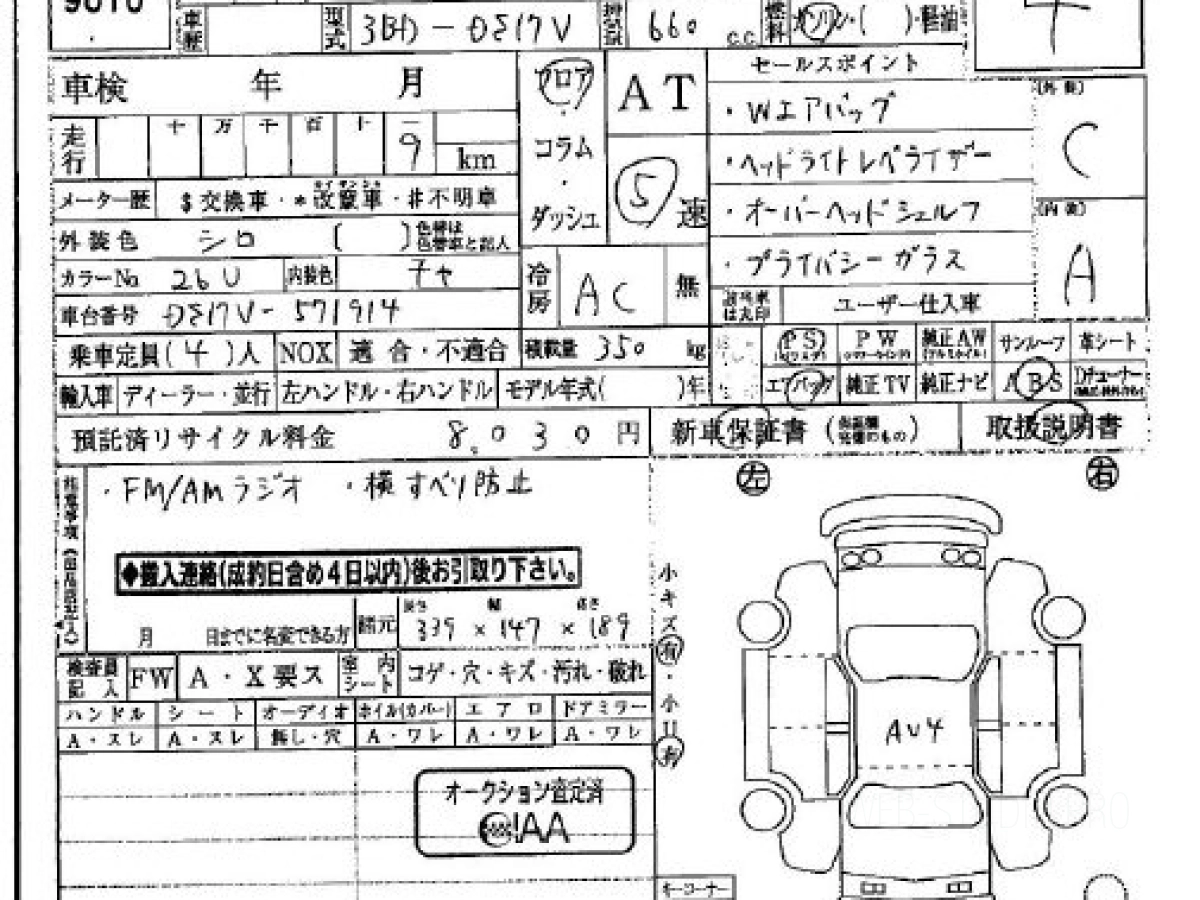 9010
車歴 型式 3BD-DS17V 排気量 660 c.c. 燃料 ガソリン・( )・軽油
車検 年 月 フロア・コラム・ダッシュ AT ⑤速 セールスポイント
・Wエアバッグ
・ヘッドライトレベライザー
・オーバーヘッドシェルフ
・プライバシーガラス
(外装) C
(内装) A
走行 十 万 千 百 十 一 9 km
メーター歴 $交換車・*改竄車・#不明車
外装色 シロ ( ) 色替は色替車と記入
カラーNo. 26U 内装色 チャ 冷房 AC 無 該当車は丸印 ユーザー仕入車
車台番号 DS17V-571914
乗車定員(4)人 NOX 適合・不適合 積載量 350 kg PS PW 純正AW サンルーフ 革シート
輸入車 ディーラー・並行 左ハンドル・右ハンドル モデル年式( )年 エアバッグ 純正TV 純正ナビ ABS Dチューナー
預託済リサイクル料金 8,030円 新車保証書 取扱説明書
・FM/AMラジオ ・横すべり防止 左 右
◆搬入連絡(成約日含め4日以内)後お引取り下さい。
月 日までに名変できる方 諸元 長さ 幅 高さ 339×147×189
小キズ有・小凹有
検査員記入 FW A・X要ス 室内シート コゲ・穴・キズ・汚れ・破れ
ハンドル シート オーディオ ホイル(カバー) エアロ ドアミラー
A・スレ A・スレ 無し・穴 A・ワレ A・ワレ A・ワレ
AU4
オークション査定済
IAA
キーコーナー